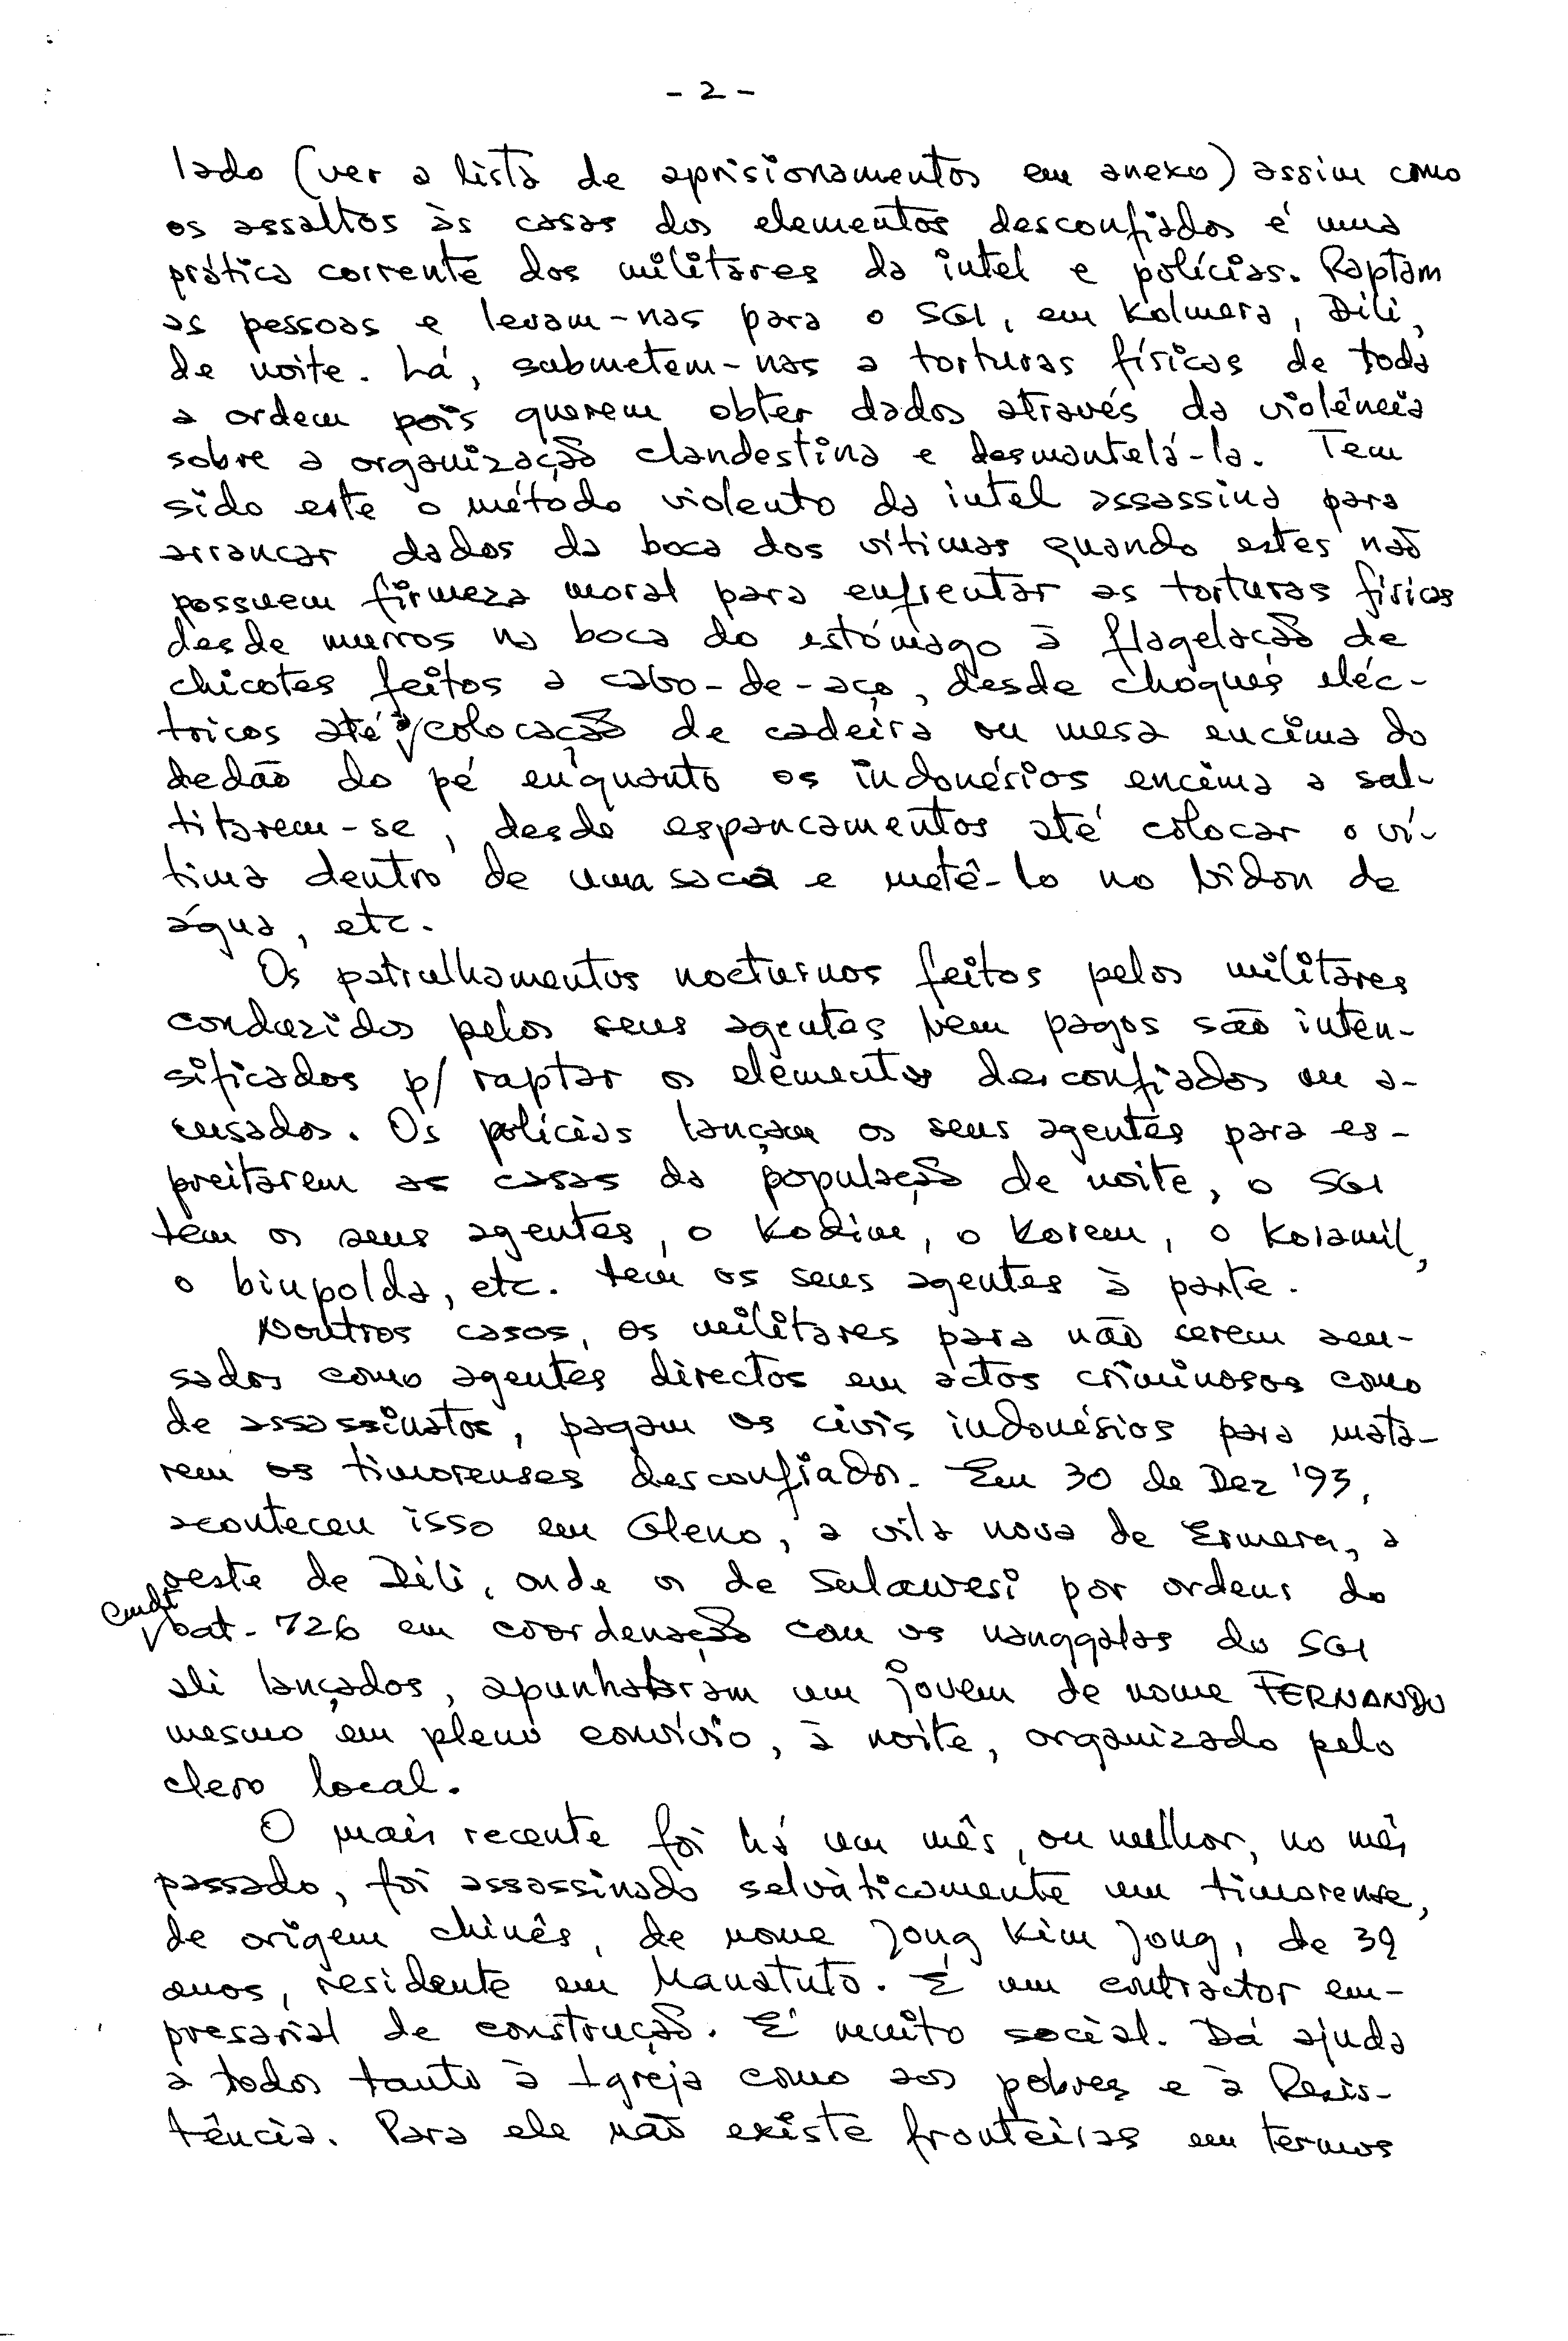 - 2 -
lado (ver a lista de aprisionamentos em anexo) assim como
os assaltos às casas dos elementos desconfiados é uma
prática corrente dos militares da intel e polícias. Raptam
as pessoas e levam-nas para o SGI, em Kolmera, Dili,
de noite. Lá, submetem-nas a torturas físicas de toda
a ordem pois querem obter dados através da violência
sobre a organização clandestina e desmantelá-la. Tem
sido este o método violento da intel assassina para
arrancar dados da boca dos vítimas quando estes não
possuem firmeza moral para enfrentar as torturas físicas
desde murros na boca do estómago à flagelação de
chicotes feitos a cabo-de-aço, desde choques eléc-
tricos até à colocação de cadeira ou mesa encima do
dedão do pé enquanto os indonésios encima a sal-
titarem-se, desde espancamentos até colocar o ví-
tima dentro de uma saca e metê-lo no bidon de
água, etc.
Os patrulhamentos nocturnos feitos pelos militares
conduzidos pelos seus agentes bem pagos são inten-
sificados p/ raptar os elementos desconfiados ou a-
cusados. Os polícias lançam os seus agentes para es-
preitarem as casas da população de noite, o SGI
tem os seus agentes, o Kodim, o Korem, o Koramil,
o binpolda, etc. tem os seus agentes à parte.
Noutros casos, os militares para não serem acu-
sados como agentes directos em actos criminosos como
de assassinatos, pagam os civis indonésios para mata-
rem os timorenses desconfiados. Em 30 de Dez '93,
aconteceu isso em Gleno, a vila nova de Ermera, a
oeste de Dili, onde os de Sulawesi por ordens do
cmdt
bat- 726 em coordenação com os nanggalas do SGI
ali lançados, apunhalaram um jovem de nome FERNANDO
mesmo em pleno convívio, à noite, organizado pelo
clero local.
O mais recente foi há um mês, ou melhor, no mês
passado, foi assassinado selvàticamente um timorense,
de origem chinês, de nome Jong Kim Jong, de 39
anos, residente em Manatuto. É um contractor em-
presarial de construção. É muito social. Dá ajuda
a todos tanto à Igreja como aos pobres e à Resis-
tência. Para ele não existe fronteiras em termos